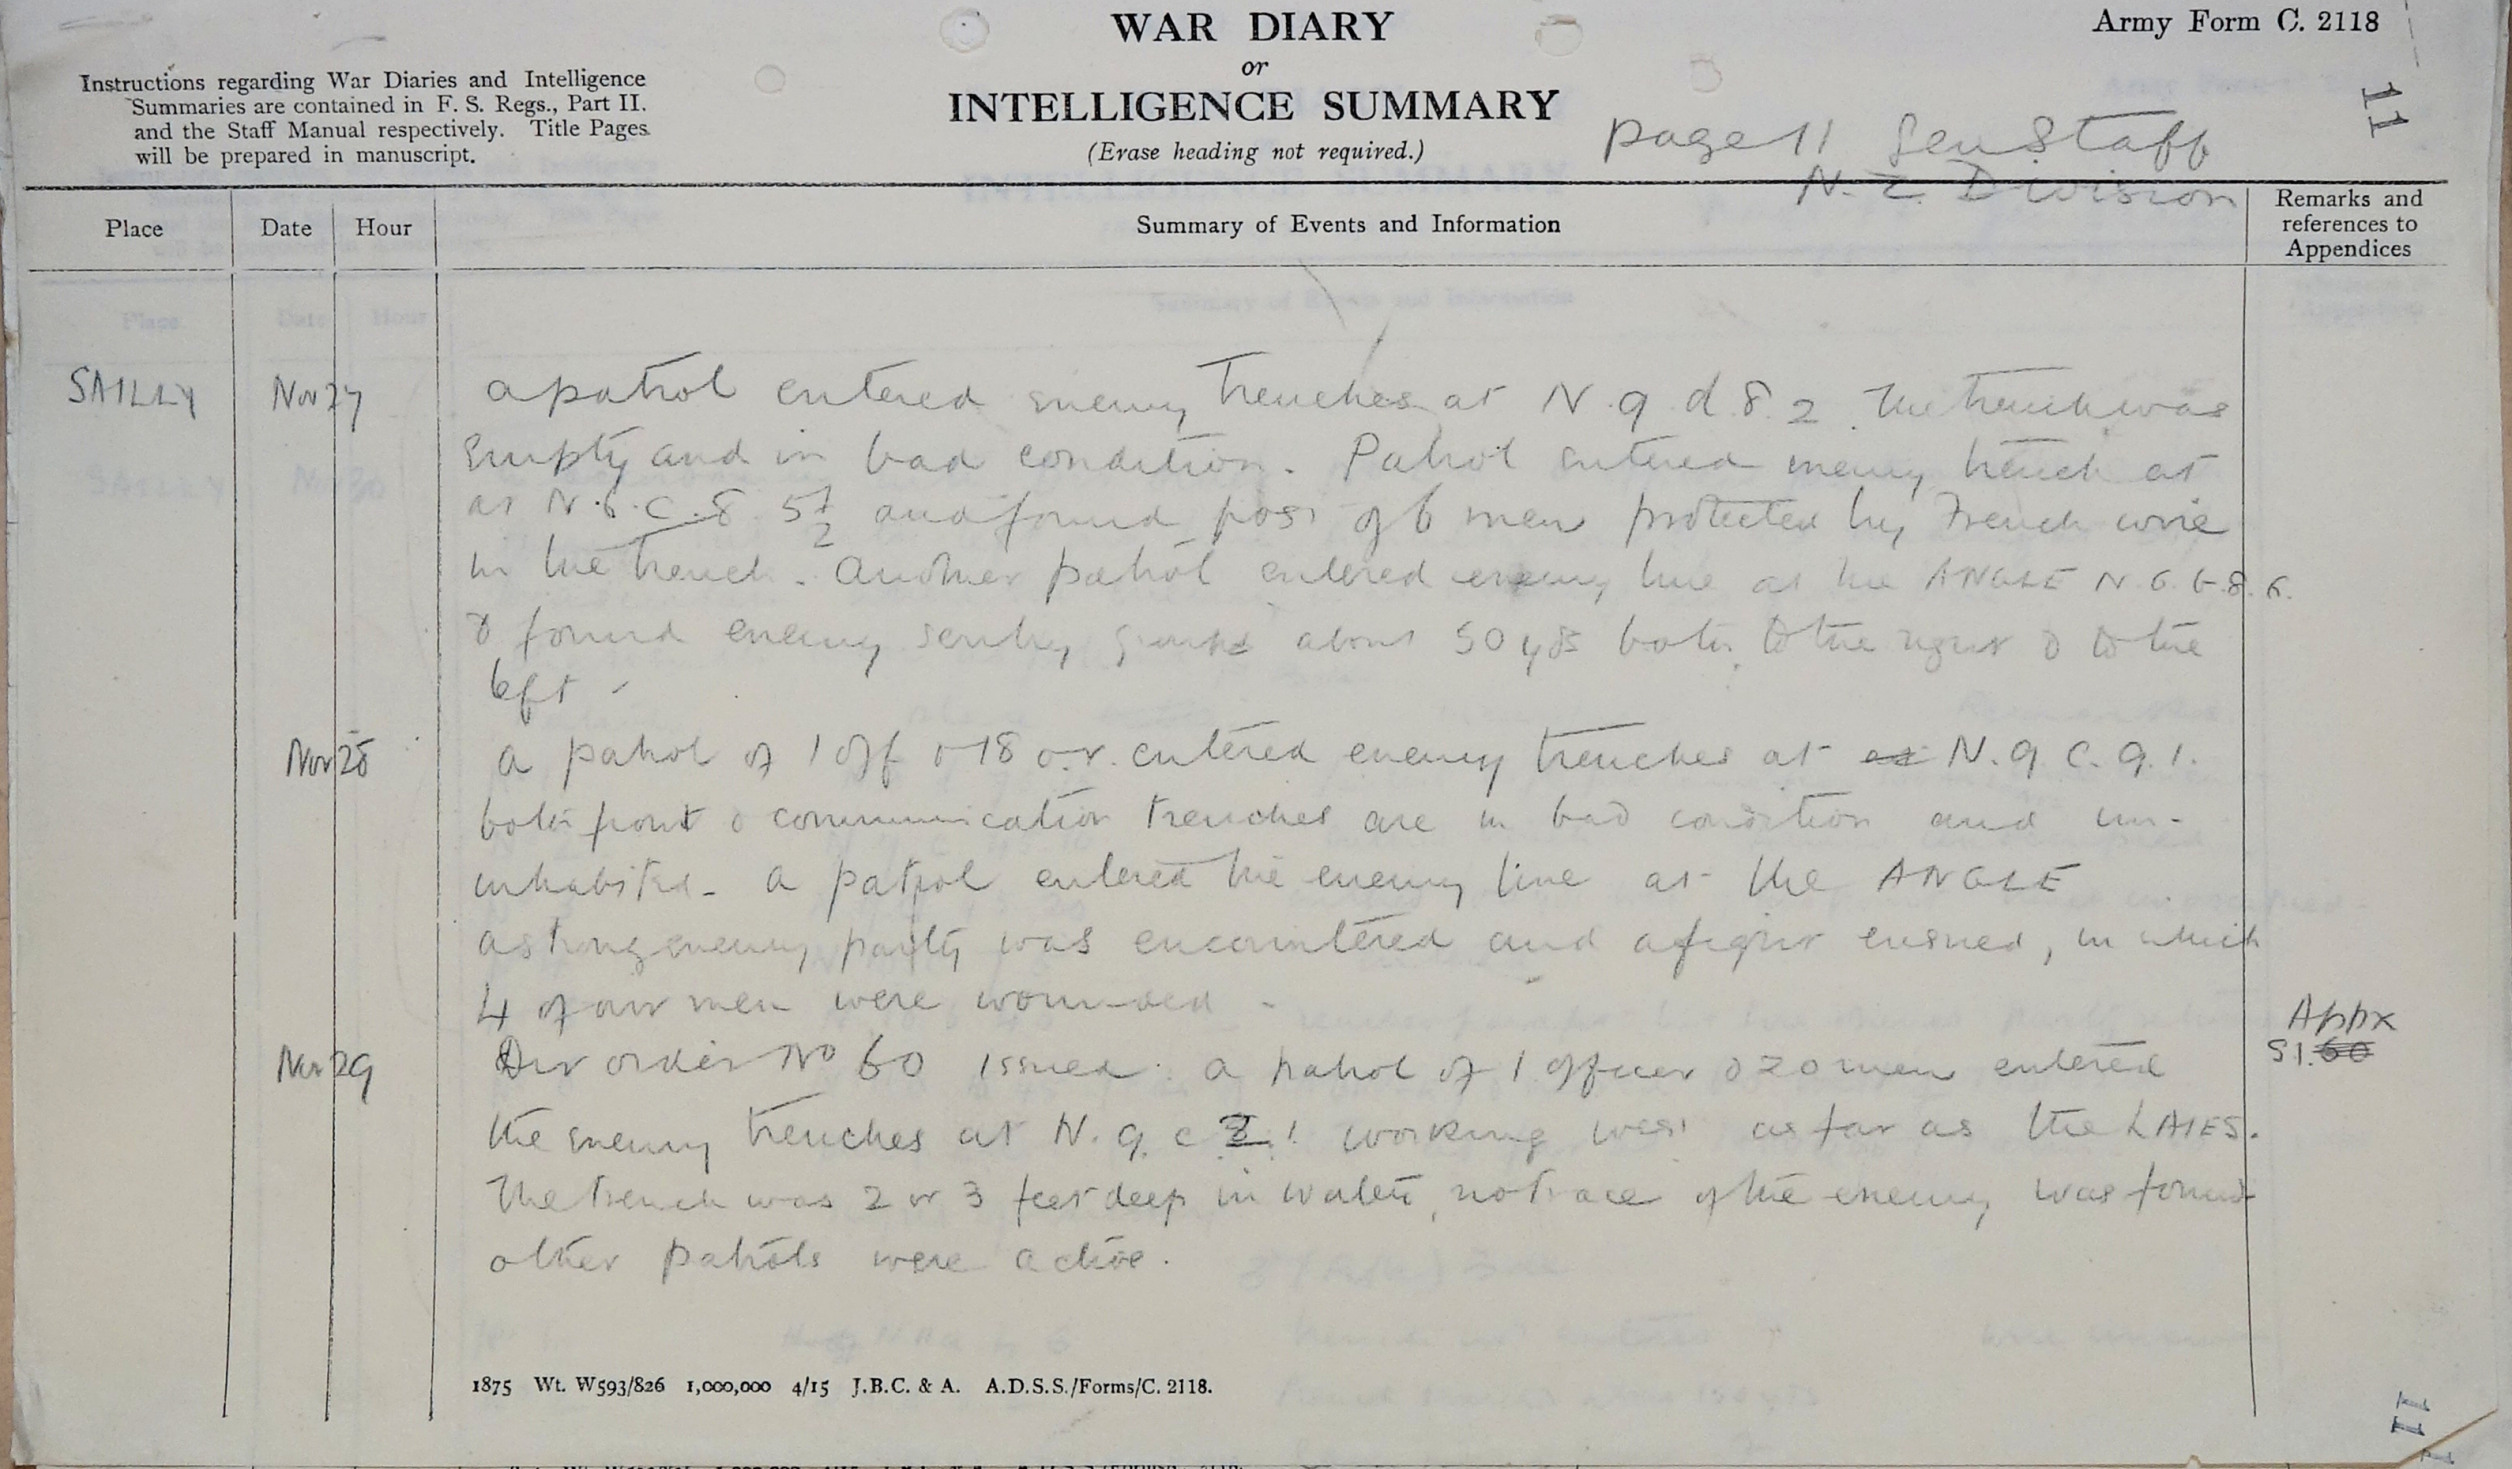 WAR DIARY
or
INTELLIGENCE SUMMARY
(Erase heading not required.)
Army Form C. 2118
11
Instructions regarding War Diaries and Intelligence
Summaries are contained in F. S. Regs., Part II.
and the Staff Manual respectively. Title Pages
will be prepared in manuscript.
page 11 Gen Staff
N. Z. Division
Place Date Hour Summary of Events and Information Remarks and
references to
Appendices
SAILLY Nov 27 a patrol entered enemy trenches at N. 9 d 8. 2. The trench was
empty and in bad condition. Patrol entered enemy trench at
at N. 6. c. 8. 5½ and found post of 6 men protected by French wire
in the trench. Another patrol entered enemy line at the ANGLE N 6. 6. 8. 6.
& found enemy sentry groups about 50 yds both to the right & to the
left -
Nov 28 a patrol of 1 off & 18 o.r. entered enemy trenches at N. 9 c. 9. 1.
both front & communication trenches are in bad condition and un-
inhabited - a patrol entered the enemy line at the ANGLE
a strong enemy party was encountered and a fight ensued, in which
4 of our men were wounded -
Nov 29 Div order No 60 issued. a patrol of 1 officer & 20 men entered Appx
51. 60
the enemy trenches at N. 9. c 2. 1 working west as far as the LAIES.
The trench was 2 or 3 feet deep in water, no trace of the enemy was found
other patrols were active.
1875 Wt. W593/826 1,000,000 4/15 J.B.C. & A. A.D.S.S./Forms/C. 2118.
11